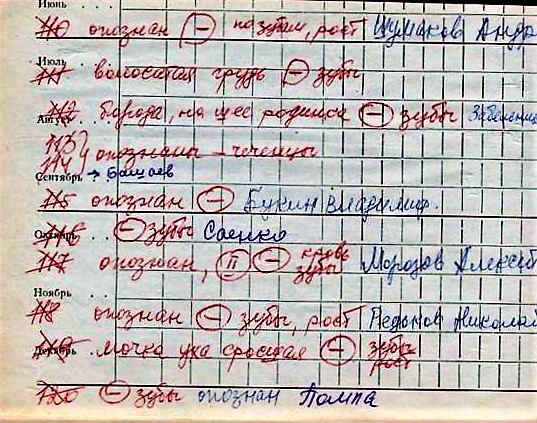 Июнь
110 опознан (−) позути, рост Шумаков Андр
Июль
111 волосатая грудь (−) зубы
112 борода, на шее родинка (−) зубы
Август
113
114 } опознаны – чеченцы
Сентябрь → Башаев
115 опознан (−) Букин Владимир.
Октябрь
116 (−) зубы Саенко
117 опознан, (II) (−) кровь зубы Морозов Алексей
Ноябрь
118 опознан (−) зубы, рост Николай
Декабрь
119 мочка уха сросшая (−) зубы рост
120 (−) зубы опознан Помпа